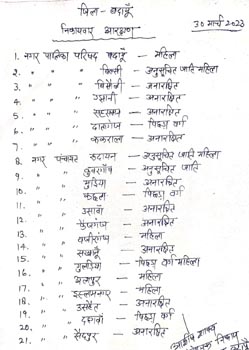 जिला - बदायूँ
निकायवार आरक्षण 30 मार्च 2023
1. नगर पालिका परिषद बदायूँ - महिला
2. " " " बिल्सी - अनुसूचित जाति महिला
3. " " " बिसौली - अनारक्षित
4. " " " उझानी - अनारक्षित
5. " " " सहसवान - अनारक्षित
6. " " " दातागंज - पिछड़ा वर्ग
7. " " " ककराला - अनारक्षित
8. नगर पंचायत रुदायन - अनुसूचित जाति महिला
9. " " कुंवरगाँव - अनुसूचित जाति
10. " " मुडिया - अनारक्षित
11. " " कछला - पिछड़ा वर्ग
12. " " उसावाँ - अनारक्षित
13. " " फैजगंज - पिछड़ा वर्ग
14. " " वजीरगंज - महिला
15. " " सखानू - अनारक्षित
16. " " गुलड़िया - पिछड़ा वर्ग महिला
17. " " अलापुर - महिला
18. " " इस्लामनगर - महिला
19. " " उसहैत - अनारक्षित
20. " " दहगवाँ - पिछड़ा वर्ग
21. " " सैदपुर - अनारक्षित